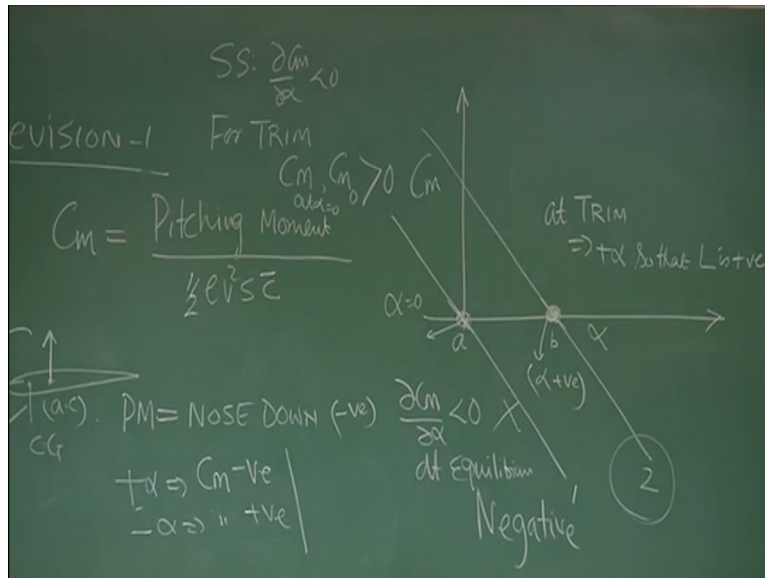 SS: ∂Cm/∂α <0
EVISION-1
For TRIM
Cm at α=0, Cm0 >0
Cm = Pitching Moment / ½ρV²S c̄
Cm
at TRIM
⇒ +α so that L is +ve
α=0
a
b
α
(α +ve)
(a.c).
CG
PM = NOSE DOWN (-ve)
∂Cm/∂α <0 X
at Equilibium
+α ⇒ Cm -ve
-α ⇒ " +ve
Negative
1
2